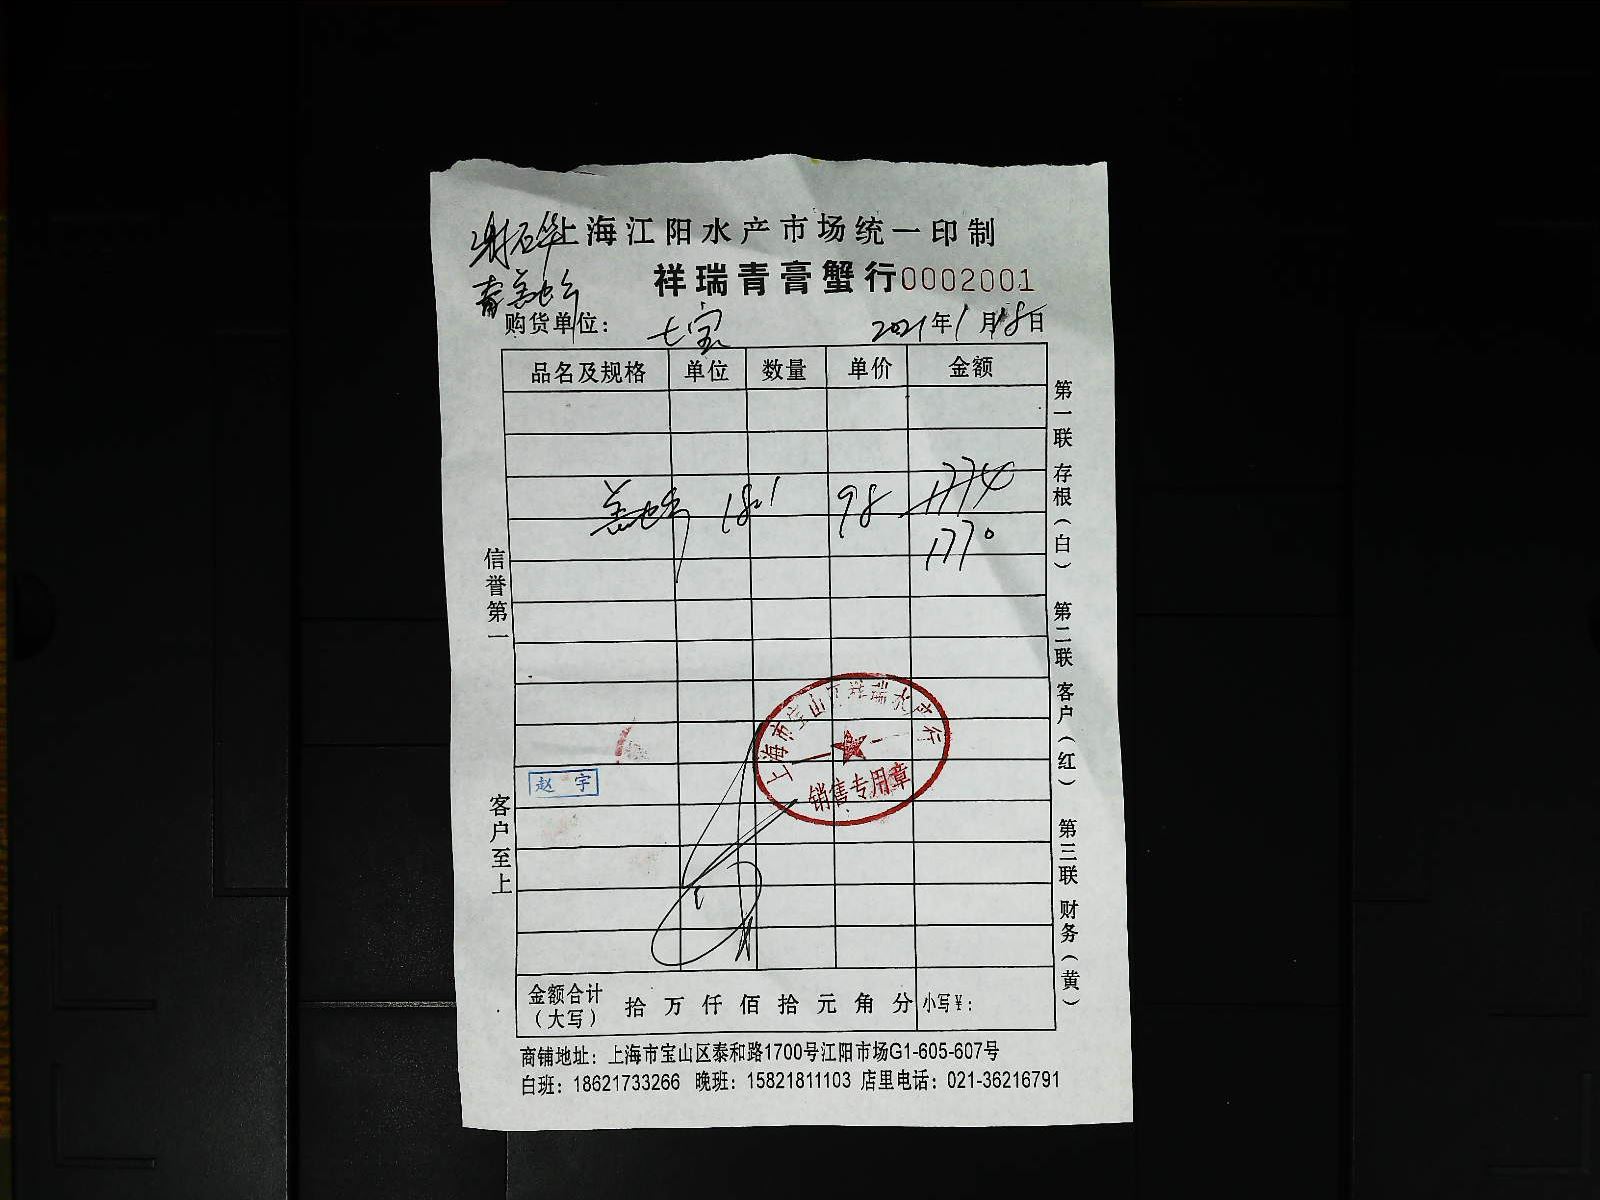 上海江阳水产市场统一印制
祥瑞青膏蟹行0002001
购货单位: 七宝 2021年1月18日
品名及规格 单位 数量 单价 金额
18.1 98 1774
1770
信誉第一
客户至上
第一联 存根(白) 第二联 客户(红) 第三联 财务(黄)
上海市宝山区祥瑞水产行
销售专用章
赵宇
金额合计(大写) 拾 万 仟 佰 拾 元 角 分 小写¥:
商铺地址: 上海市宝山区泰和路1700号江阳市场G1-605-607号
白班: 18621733266 晚班: 15821811103 店里电话: 021-36216791